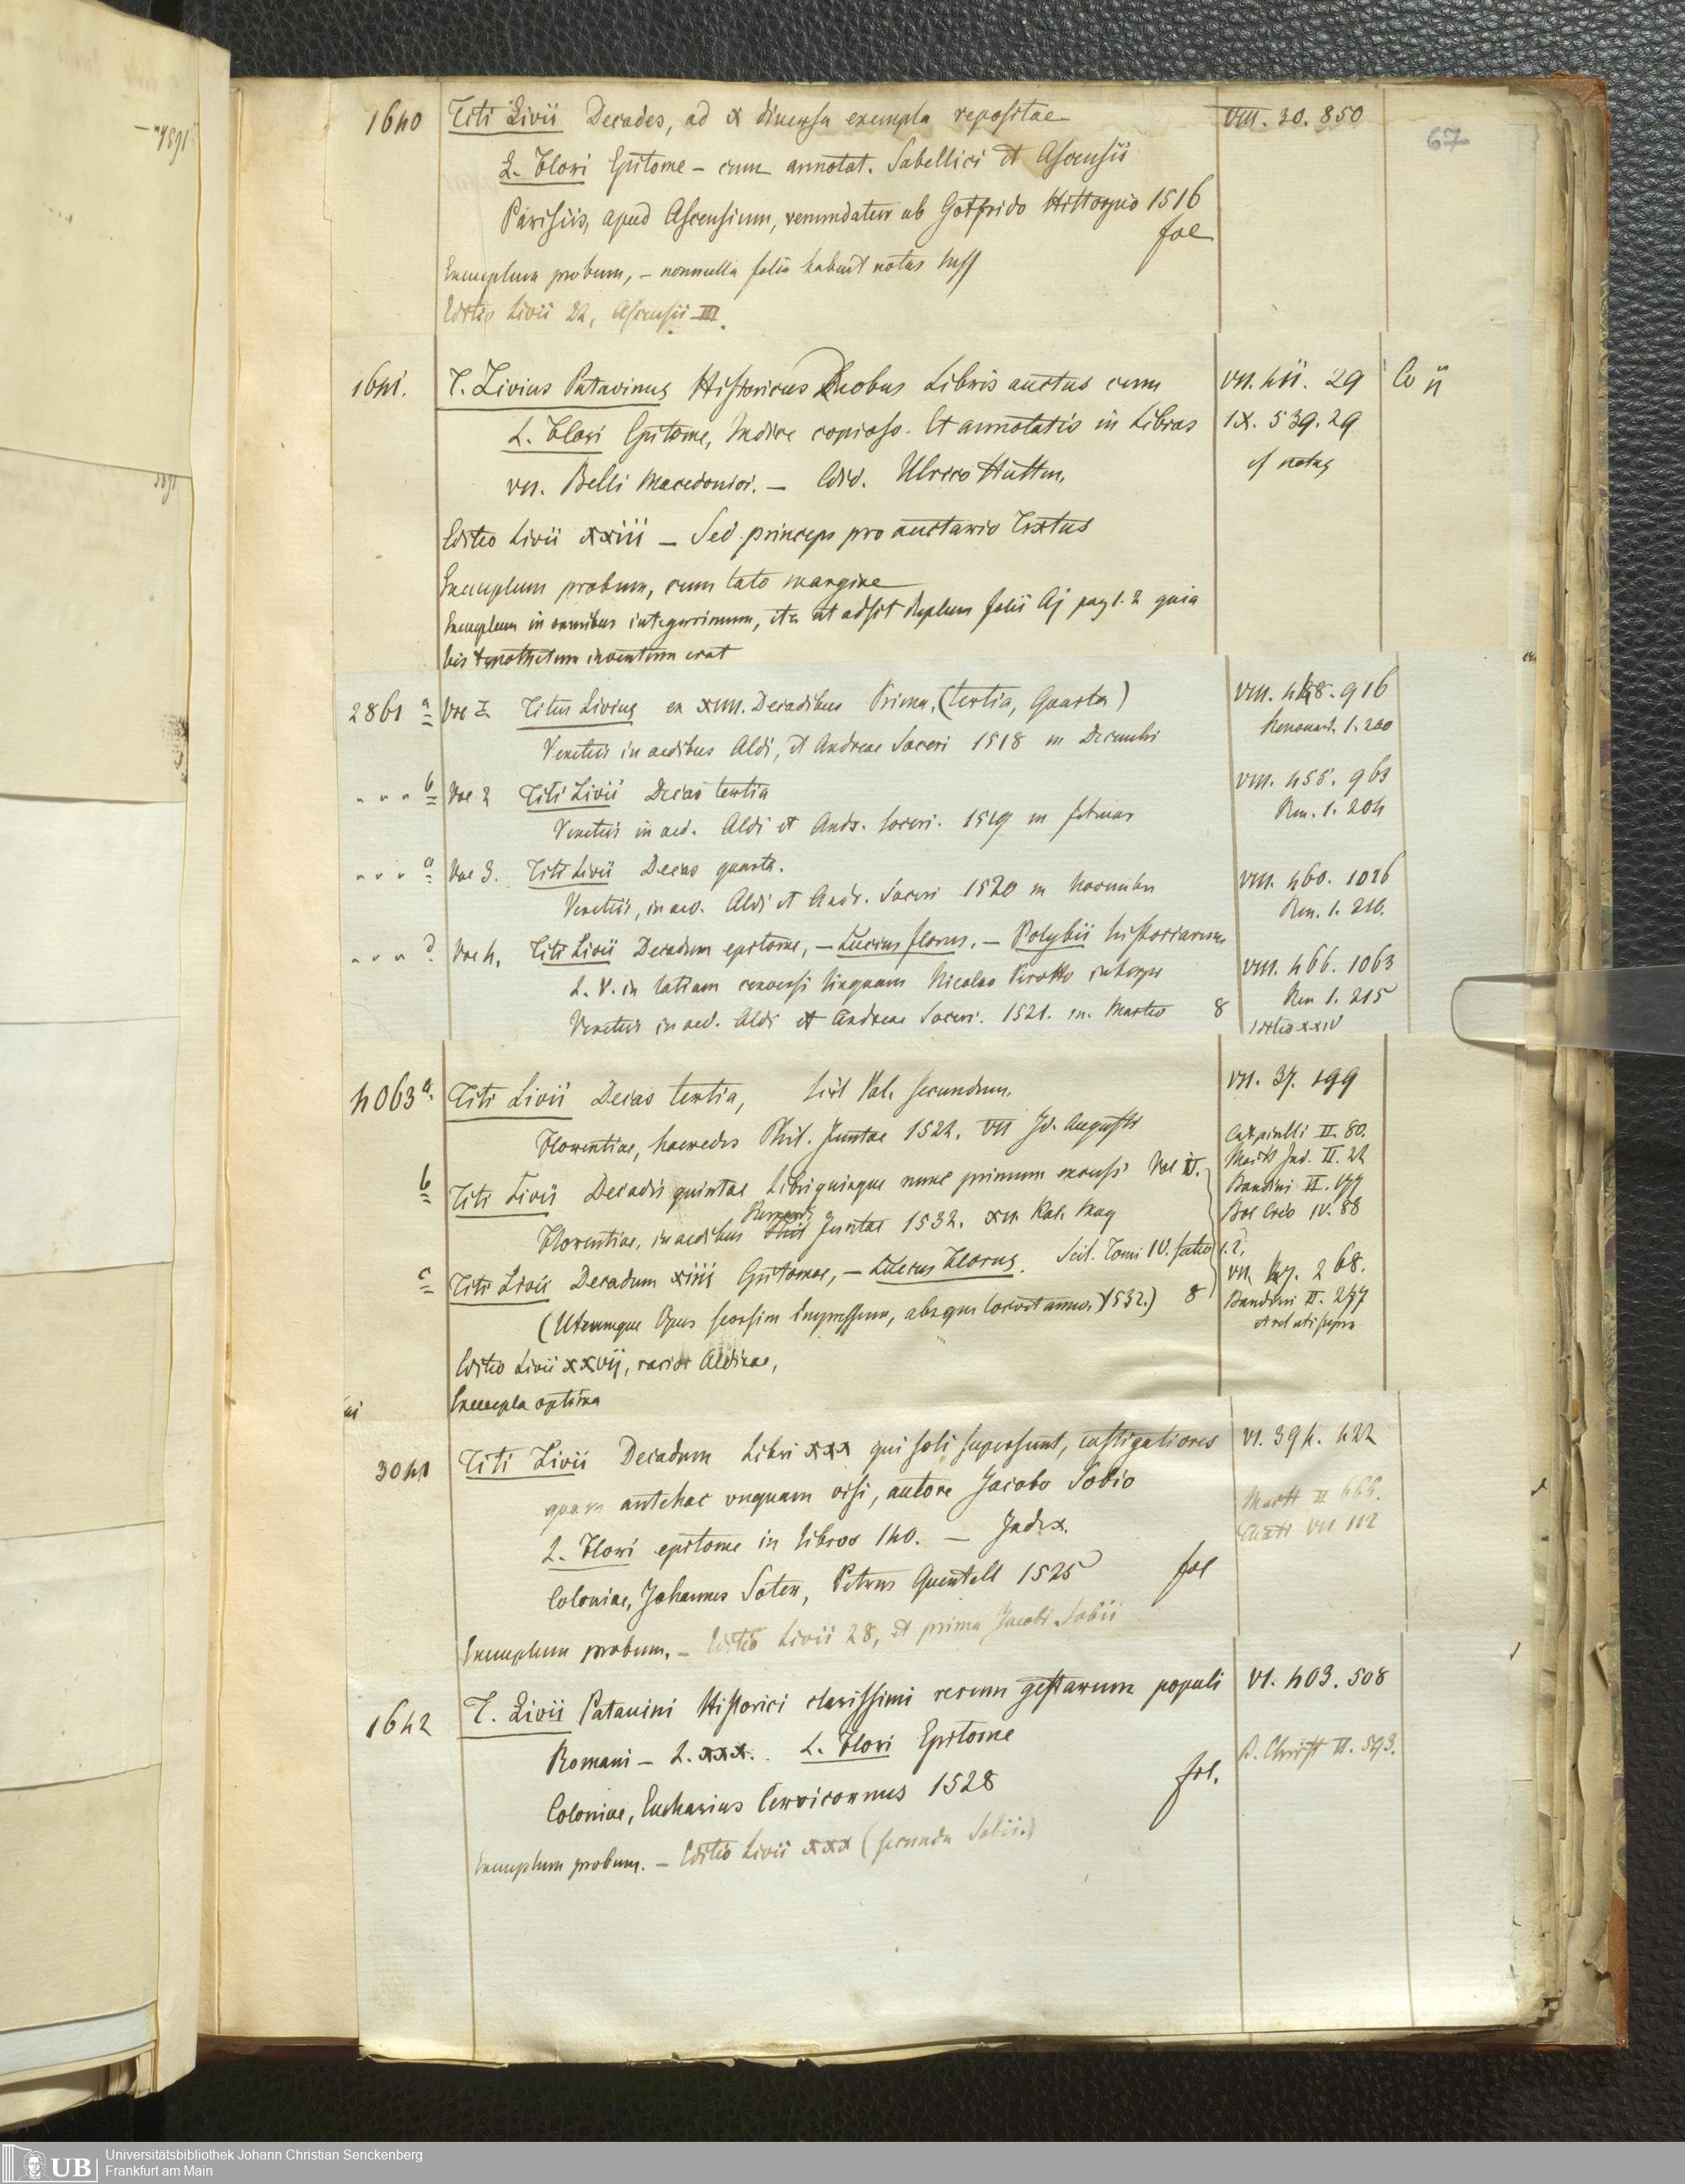 67
1640 Titi Livii Decades, ad x diversa exempla repositae VIII. 30. 850
L. Flori Epitome – cum annotat. Sabellici et Ascensii
Parisiis, apud Ascensium, venundatur ab Gotfrido Hittorpio 1516
fol
Exemplum probum, – nonnulla folia habent notas Mss
Editio Livii 22, Ascensii III.
1641. T. Livius Patavinus Historicus Duobus Libris auctus cum VII. 411. 29 Co
L. Flori Epitome, Indice copioso. Et annotatis in Libros IX. 539. 29
VII. Belli Macedonici. – Edid. Ulrico Hutten. cf notas
Editio Livii xxiii – Sed princeps pro auctario Textus
Exemplum probum, cum lato margine
Exemplum in omnibus integerrimum, ita ut adsit duplum folii Aj pag 1. 2 quia
bis inventum erat
2861 a Vol I Titus Livius ex XIIII. Decadibus Prima, (tertia, Quarta) VIII. 448. 916
Venetiis in aedibus Aldi, et Andreae Soceri 1518 m Decembri Renouard. 1. 200
" " " b Vol 2 Titi Livii Decas tertia VIII. 455. 961
Venetiis in aed. Aldi et Andr. Soceri. 1519 m februar Ren. 1. 204
" " " Vol 3. Titi Livii Decas quarta. VIII. 460. 1026
Venetiis, in aed. Aldi et Andr. Soceri 1520 m Novembri Ren. 1. 210.
" " " d Vol 4. Titi Livii Decadum epitome, – Lucius florus. – Polybii historiarum
L. V. in latinam conversi linguam Nicolao Perotto interpr VIII. 466. 1063
Venetiis in aed. Aldi et Andreae Soceri. 1521. m. Martio 8 Ren 1. 215
Editio xxiV
4063 a. Titi Livii Decas tertia, Scil Vol. secundum. VII. 37. 199
Florentiae, haeredes Phil. Juntae 1522. VII Id. Augusti II. 80.
Jnd. II. 22
b Titi Livii Decadis quintae Libri quinque nunc primum excussi Vol IV. Bandini II. 177
Florentiae, in aedibus Phil Juntae 1532. Kal. Mag IV. 88
c Titi Livii Decadum xiiii Epitomae, – Lucius Florus. Scil. Tomi IV. 268.
(Utrumque Opus seorsim impressum, absque loco et anno. 1532.) 8 Bandini II. 277
Editio Livii xxvij, rarior Aldinae,
Exempla optima
3041 Titi Livii Decadum Libri xxx qui soli supersunt, castigatiores VI. 394. 422
quam antehac unquam visi, autore Jacobo Sobio
L. Flori epitome in libros 140. – Index.
Coloniae, Johannes Soter, Petrus Quentell 1525 fol
Exemplum probum. – Editio Livii 28, et prima Jacobi Sobii
1642 T. Livii Patauini Historici clarissimi rerum gestarum populi VI. 403. 508
Romani – L. xxx. L. Flori Epitome B. Christ II. 593.
Coloniae, Eucharius Cervicornus 1528 fol.
Exemplum probum. – Editio Livii xxx (secunda Sobii.)
UB
Universitätsbibliothek Johann Christian Senckenberg
Frankfurt am Main